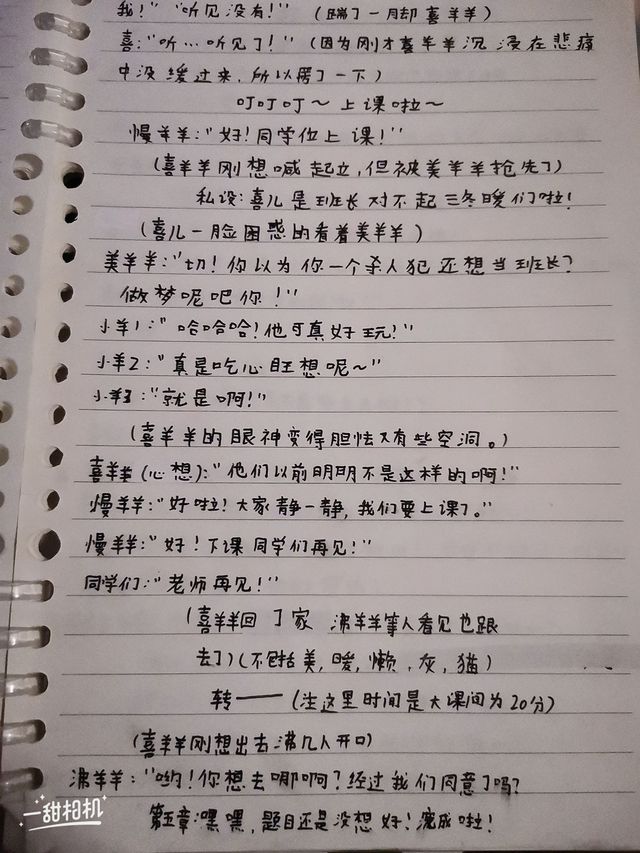 我!" "听见没有!" (踹了一月却喜羊羊)
喜:"听…听见了!" (因为刚才喜羊羊沉浸在悲痛
中没缓过来,所以愣了一下)
叮叮叮~上课啦~
慢羊羊:"好!同学位上课!"
(喜羊羊刚想喊起立,但被美羊羊抢先了)
私设:喜儿是班长对不起三冬暖们啦!
(喜儿一脸困惑的看着美羊羊)
美羊羊:"切!你以为你一个杀人犯还想当班长?
做梦呢吧你!"
小羊1:"哈哈哈!他可真好玩!"
小羊2:"真是吃心旺想呢~"
小羊3:"就是啊!"
(喜羊羊的眼神变得胆怯又有些空洞。)
喜羊羊(心想):"他们以前明明不是这样的啊!"
慢羊羊:"好啦!大家静一静,我们要上课了。"
慢羊羊:"好!下课同学们再见!"
同学们:"老师再见!"
(喜羊羊回了家 沸羊羊等人看见也跟
去了)(不包括美,暖,懒,灰,猫)
转——(注这里时间是大课间为20分)
(喜羊羊刚想出去沸几人开口)
沸羊羊:"哟!你想去哪啊?经过我们同意了吗?
第五章:嘿嘿,题目还是没想好!完成啦!
一甜相机